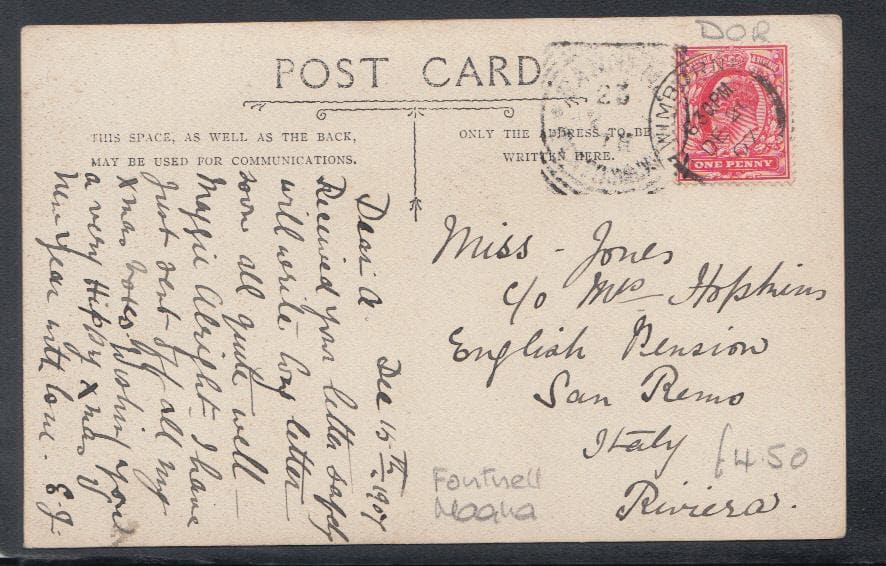 DOR
POST CARD.
THIS SPACE, AS WELL AS THE BACK,
MAY BE USED FOR COMMUNICATIONS.
ONLY THE ADDRESS TO BE
WRITTEN HERE.
WIMBORNE
6 30 PM
07
23
ONE PENNY
Dec 15th 1907
Dear A.
Received your letter safely
will write long letter
soon all quite well –
Maggie alright. I have
just sent off all my
Xmas notes. Wishing you
a very Happy Xmas &
New Year with love. E.J.
Miss - Jones
c/o Mrs Hopkins
English Pension
San Remo
Italy
Riviera.
£4.50
Fontnell
Magna